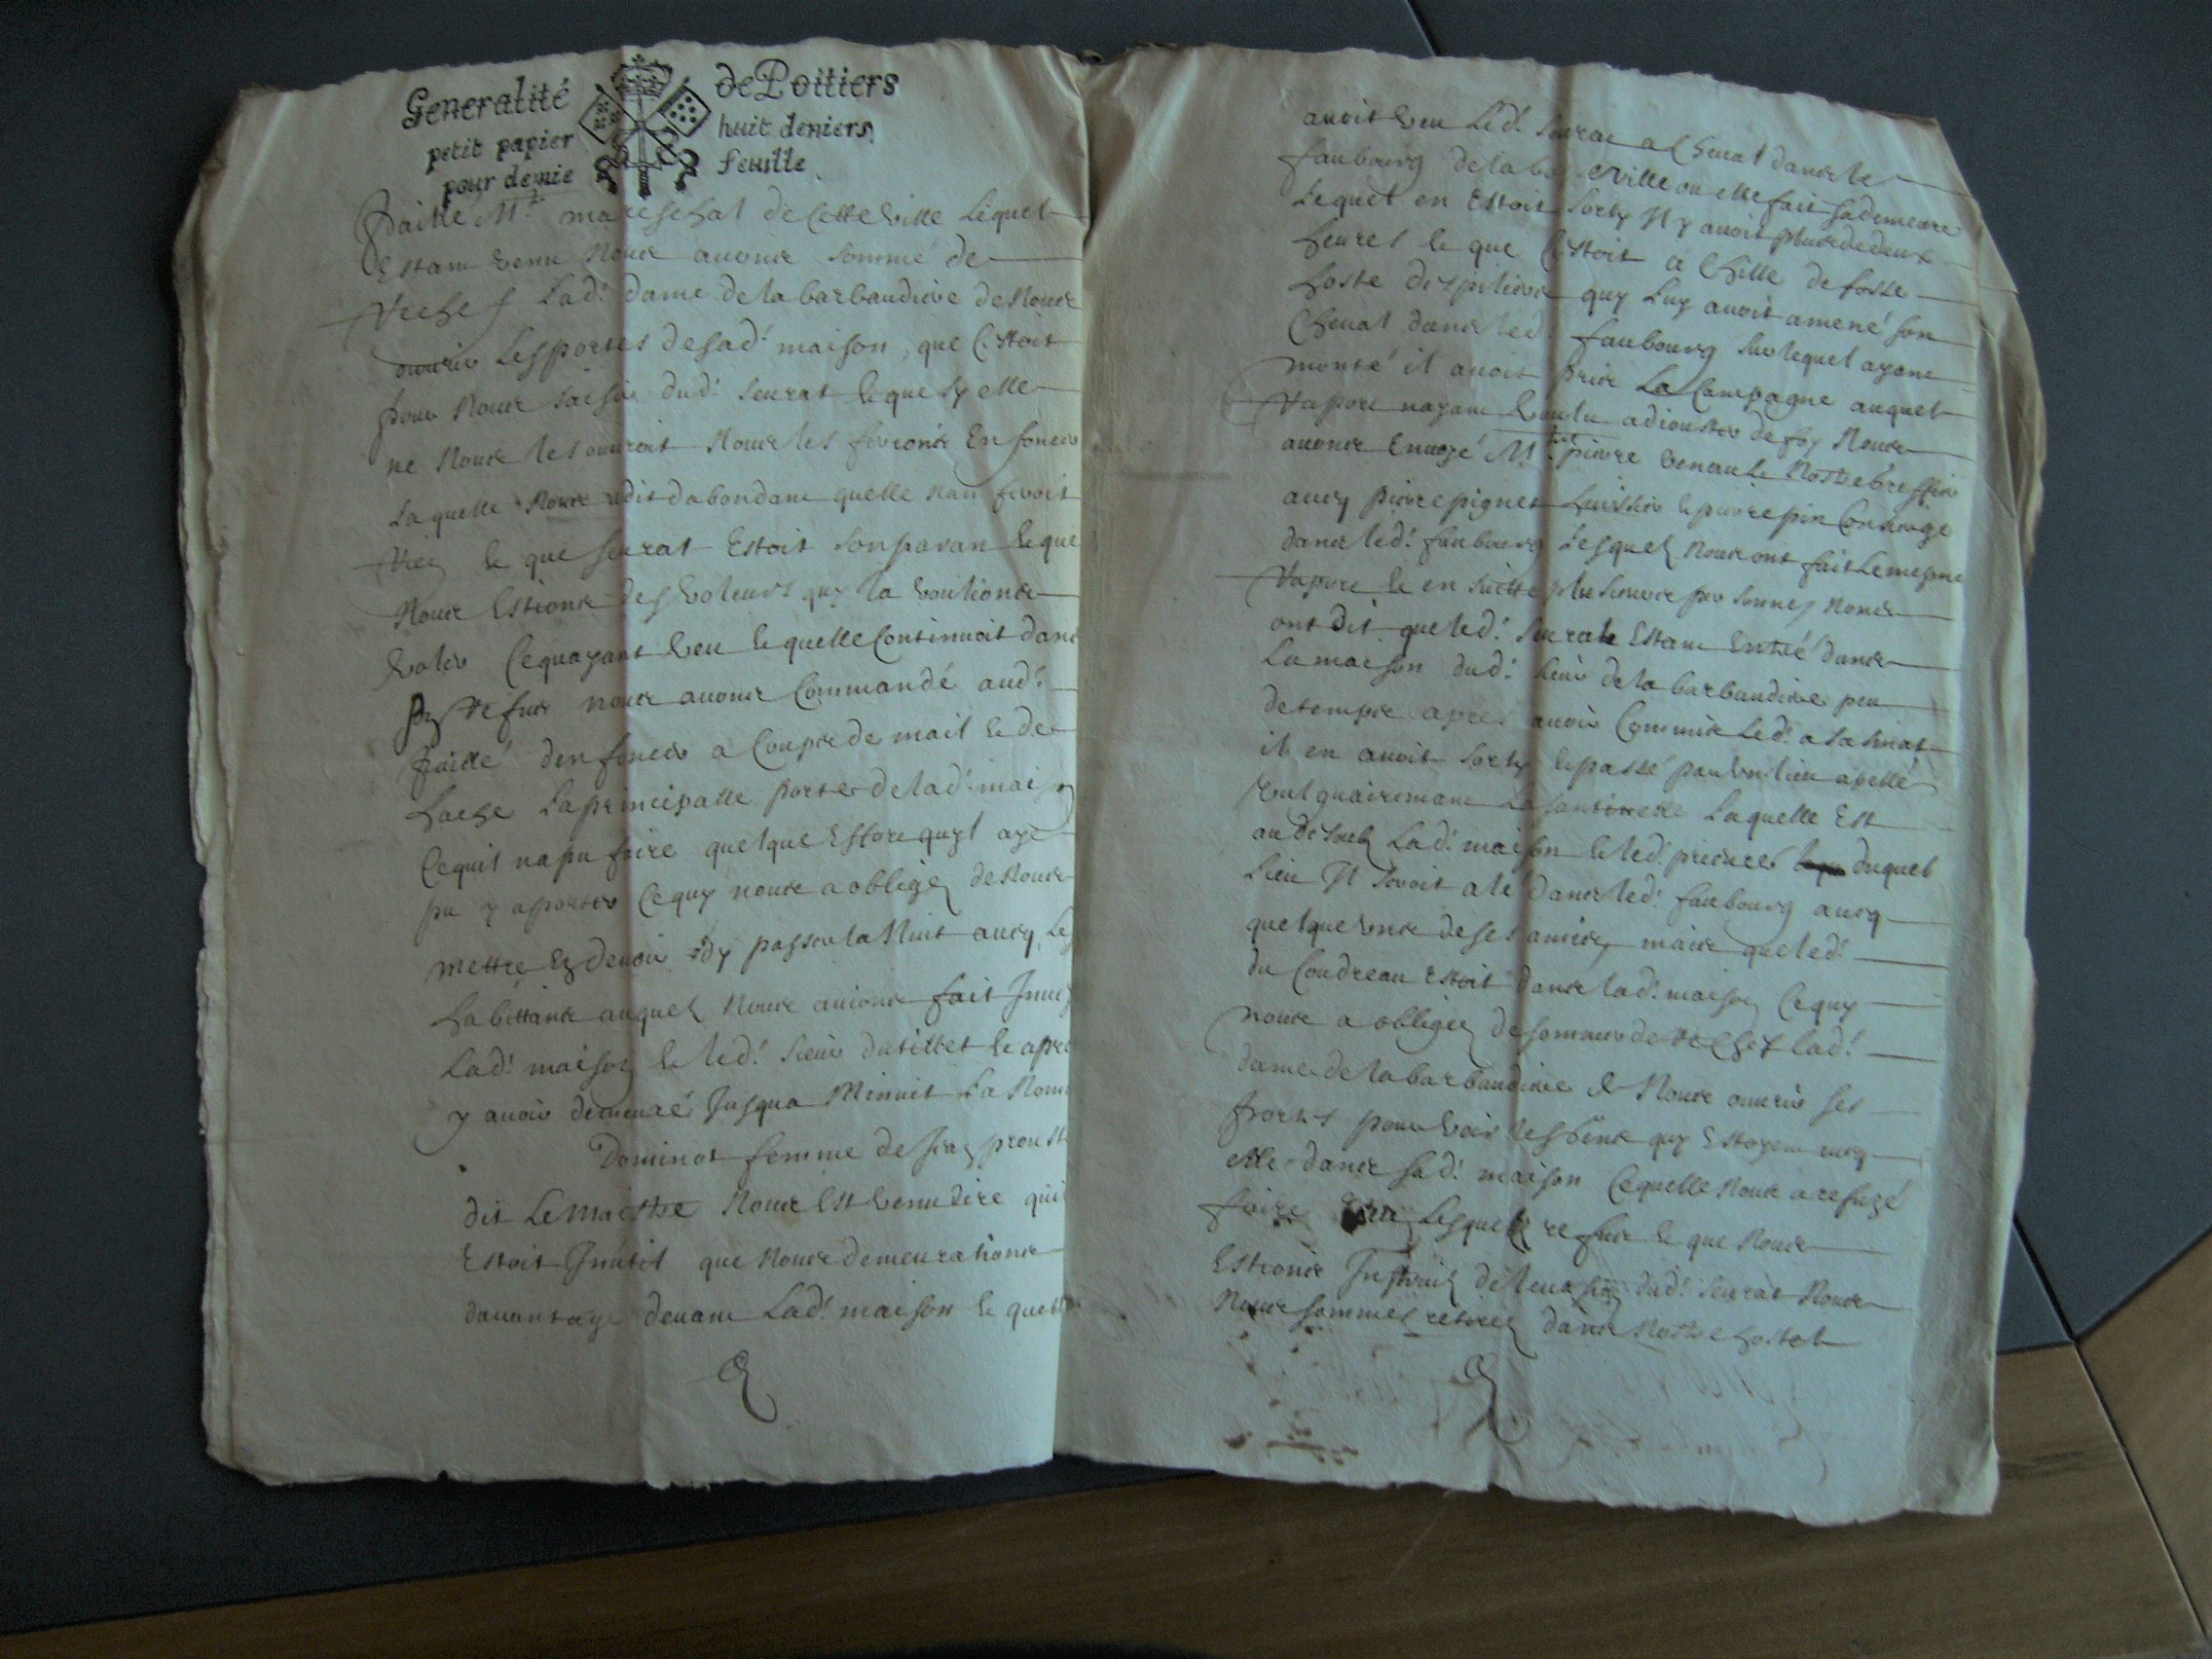 Generalité de Poitiers
petit papier huit deniers
pour demie feuille
faitte M.e mareschal de Cette ville Lequel
Estant venu Nous avons sommé de
rechef Lad. dame de la barbaudiere de Nous
ouvrir Les portes de sad. maison, que C'estoit
pour Nous saisir dud. seurat & que sy elle
ne Nous les ouvroit Nous les ferions Enfoncer
Laquelle Nous a dit dabondant quelle nan feroit
rien & que seurat Estoit son paran & que
Nous Estions des voleurs quy la voulions
voler Ce quayant veu & quelle Continuoit dans
ses refus nous avons Commandé aud.
faitte denfoncer a Coups de mail & de
hache La principalle porte de lad. maison
Ce quil na pu faire quelque Effort quyl aye
pu y aporter Ce quy nous a obligé de Nous
mettre En devoir dy passer la Nuit avecq Les
habittans auquel Nous avions fait
Lad. maison & led. sieur dutillet & apres
y avoir demeuré Jusqua Minuit La Nommee
Dominot femme de
dit Le maistre Nous Est venu dire quil
Estoit Inutil que Nous demeurations
davantage devant Lad. maison & quelle
avoit veu Led. seurat a Cheval dans le
faubourg de la ville ou elle fait sa demeure
Lequel en Estoit sorty Il y avoit plus de deux
heures & que C'estoit a Chille de fosse
hoste des piliers quy Luy avoit amené son
Cheval dans led. faubourg sur lequel ayant
monté il avoit pris La Campagne auquel
rapore nayant voulu adiouster de foy Nous
avons Envoyé M.e pierre venault Nostre Greffier
avecq pierre pignet huissier & pierre pin Concierge
dans led. faubourg Lesquelz Nous ont fait Le mesme
rapore & en suitte plusieurs personnes Nous
ont dit que led. seurat Estant Entré dans
La maison dud. sieur de la barbaudiere peu
de temps apres avoir Commis Led. asasinat
il en avoit sorty & passé par un lieu apellé
vulguairemant La Laquelle Est
au desoubz Lad. maison & led. duquel
Lieu Il seroit alé dans led. faubourg avecq
quelque uns de ses amis, mais que led.
du Coudreau Estoit dans lad. maison Ce quy
nous a obligez de sommer de rechef lad.
dame de la barbaudiere de Nous ouvrir ses
portes pour voir les gens quy Estoyent avecq
elle dans sad. maison Ce quelle Nous a refuzé
faire Lesquelz refus & que Nous
Estions de levasion dud. seurat Nous
Nous sommes retirez dans Nostre hostel